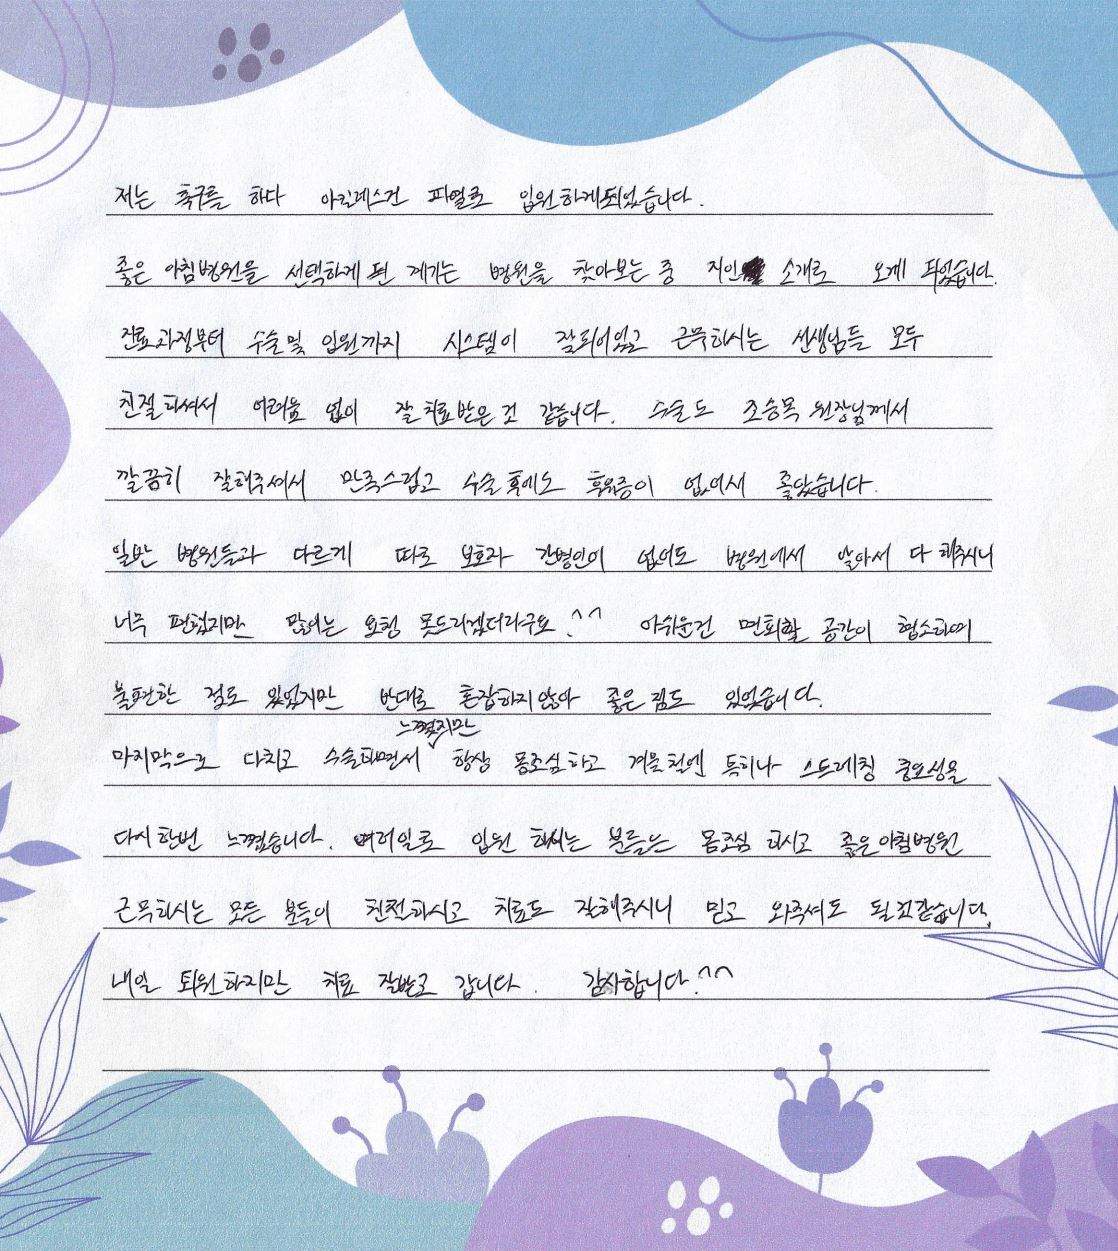 저는 축구를 하다 아킬레스건 파열로 입원하게되었습니다.
좋은 아침병원을 선택하게 된 계기는 병원을 찾아보는 중 지인 소개로 오게 되었습니다.
진료과정부터 수술 및 입원까지 시스템이 잘되어있고 근무하시는 선생님들 모두
친절하셔서 어려움 없이 잘 치료받은 것 같습니다. 수술도 조승목 원장님께서
깔끔히 잘해주셔서 만족스럽고 수술 후에도 후유증이 없어서 좋았습니다.
일반 병원들과 다르게 따로 보호자 간병인이 없어도 병원에서 알아서 다 해주시니
너무 편했지만 많이는 요청 못드리겠더라구요.^^ 아쉬운건 면회할 공간이 협소하여
불편한 점도 있었지만 반대로 혼잡하지않아 좋은점도 있었습니다.
느꼈지만
마지막으로 다치고 수술하면서 항상 몸조심하고 겨울철엔 특히나 스트레칭 중요성을
다시한번 느꼈습니다. 여러일로 입원 하시는 분들은 몸조심 하시고 좋은아침병원
근무하시는 모든 분들이 친절하시고 치료도 잘해주시니 믿고 와주셔도 될것같습니다.
내일 퇴원하지만 치료 잘받고 갑니다. 감사합니다.^^